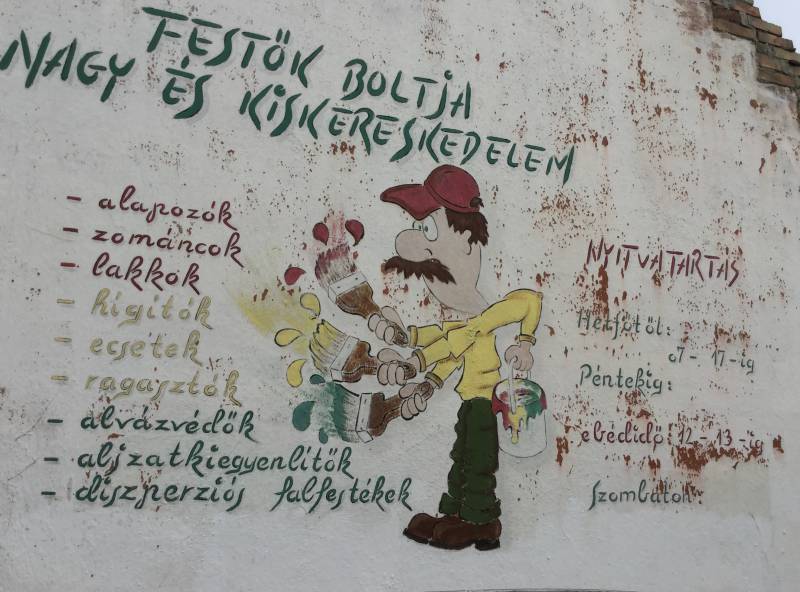 FESTŐK BOLTJA
NAGY ÉS KISKERESKEDELEM
- alapozók
- zománcok
- lakkok
- hígítók
- ecsetek
- ragasztók
- alvázvédők
- aljzatkiegyenlítők
- diszperziós falfestékek
NYITVATARTÁS
Hétfőtől:
07 - 17-ig
Péntekig:
ebédidő: 12 - 13-ig
Szombaton: